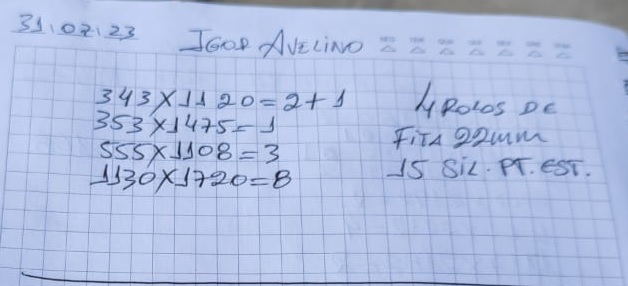 31.07.23 IGOR AVELINO
343X1120=2+1
353X1475=1
555X1108=3
1130X1720=8
4 ROLOS DE
FITA 22mm
15 SIL. PT. EST.